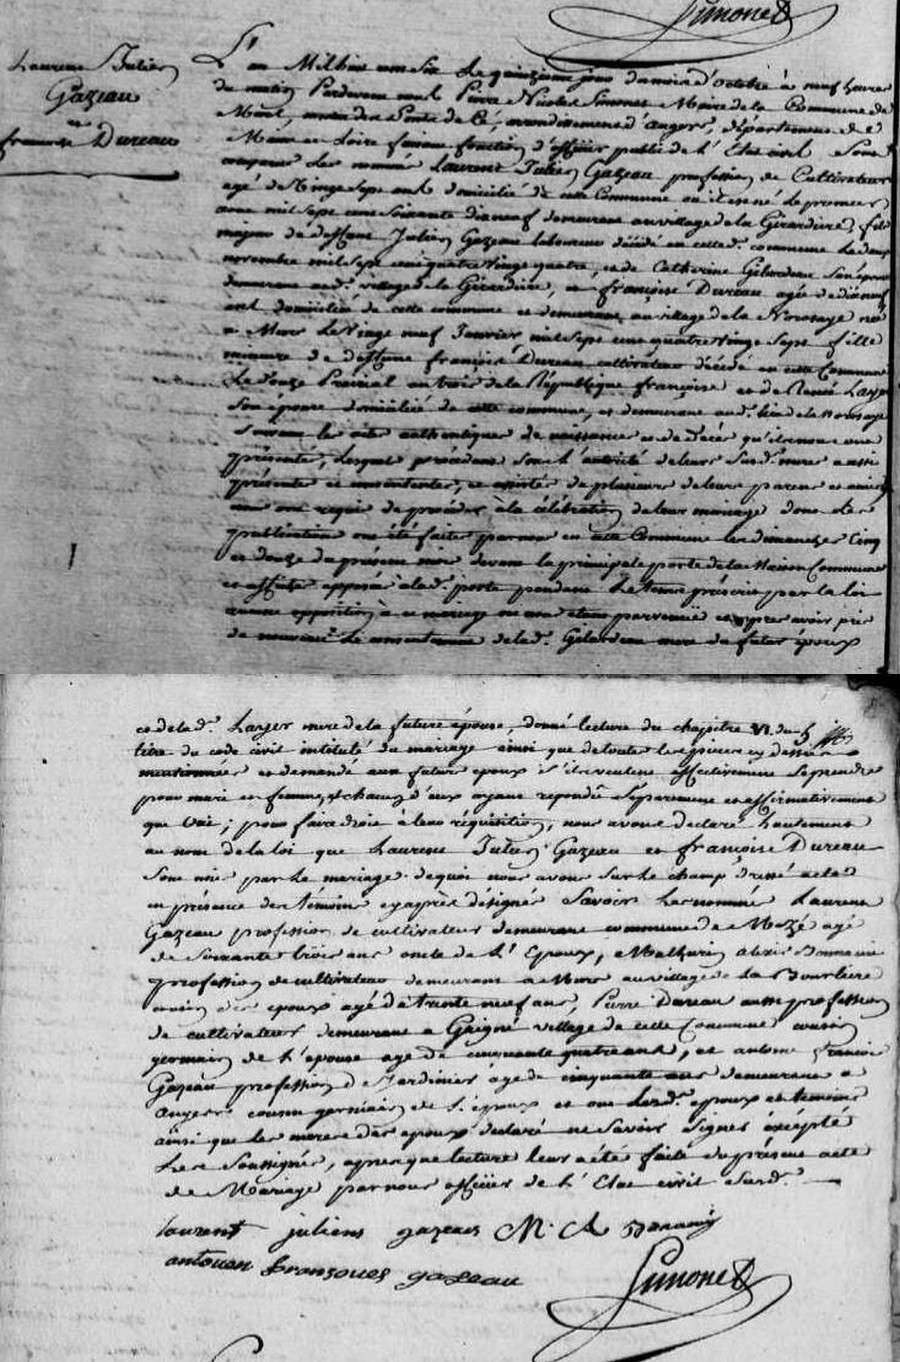 Simonet
Laurent Julien
Gazeau
et
françoise Dureau
L'an Mil huit cent six Le quinzieme jour du mois d'Octobre à neuf heures
du matin Pardevant nous Pierre Nicolas Simonet Maire de la Commune de
Murs, canton des Ponts de Cé, arrondissement d'Angers, département de
Maine et Loire faisant fonction d'officier public de l'Etat civil Sont
comparus Les nommés Laurent Julien Gazeau profession de Cultivateur
agé de Vingt sept ans domicilié de cette Commune où il est né Le premier
mil sept cent Soixante dix neuf demeurant au village de la Girardière, fils
majeur de deffunt Julien Gazeau laboureur décédé en cette de. commune Le deux
novembre mil sept cent quatre vingt quatre, et de Catherine Gilardeau son épouse
demeurant aud. village de la Girardière, et françoise Dureau agée de dix neuf
ans domiciliée de cette commune et demeurant au village de la née
a Murs Le Vingt neuf Janvier mil sept cent quatre Vingt Sept fille
mineure de deffunt françois Dureau cultivateur décédé en cette Commune
Le douze Prairial an trois de la République françoise et de Renée Lazer
Son épouse domiciliée de cette commune, et demeurant aud. lieu de la
Suivant les actes authentiques de naissance et de décès qu'ils nous ont
présenté, Lesquels procédant sous l'autorité de leurs susd. meres aussi
présentes et consentantes, et assistés de plusieurs de leurs parens et amis
nous ont requis de procéder à la célébration de leur mariage dont les
publications ont été faites par nous en cette Commune les dimanches Cinq
et douze du présent mois devant la principale porte de la Maison Commune
et affiches apposées à lad. porte pendant Le tems préscrit par la loi
aucune opposition à ce mariage ne nous étant parvenue et après avoir pris
de nouveau Le consentement de lad. Gilardeau mere du futur époux
et de lad. Lazer mere de la future épouse, donné lecture du chapitre VI du 5
titre du code civil intitulé du mariage ainsi que de toutes les pieces cy dessus
mentionnées et demandé aux futurs epoux s'ils veulent effectivement Se prendre
pour mari et femme, et chacun d'eux ayant repondu Séparement et affirmativement
que Oui; pour faire droit à leur réquisition, nous avons declaré hautement
au nom de la loi que Laurent Julien Gazeau et françoise Dureau
Sont unis par Le mariage de quoi nous avons Sur Le champ dressé acte
en présence des témoins cy après désignés Savoir Les nommés Laurent
Gazeau profession de cultivateur demeurant commune de Mozé agé
de Soixante trois ans oncle de l'Epoux, Mathurin
profession de cultivateur demeurant a Murs au village de La Bourliere
voisin des epoux agé de trente neuf ans, Pierre Dureau aussi profession
de cultivateur demeurant a Gaigné village de cette Commune cousin
germain de l'épouse agé de cinquante quatre ans, et antoine francois
Gazeau profession de Jardinier agé de cinquante ans demeurant a
Angers cousin germain de l'époux et ont Lesd. epoux et temoins
ainsi que les meres des epoux déclaré ne Savoir Signer éxcépté
Les Soussignés, apres que lecture leur a été faite du présent acte
de Mariage par nous officier de l'Etat civil Susd.
laurent juliens gazeau M. A
antouen fransoues gazeau
Simonet